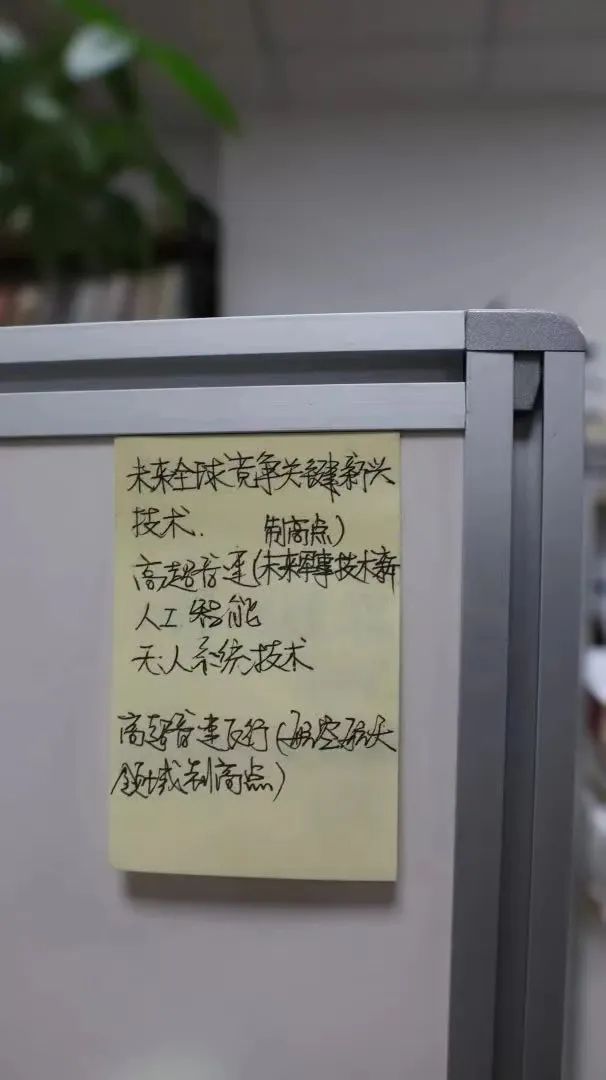 未来全球竞争关键新兴
技术.
制高点)
高超音速(未来军事技术新
人工智能
无人系统技术
高超音速飞行(航空航天
领域制高点)